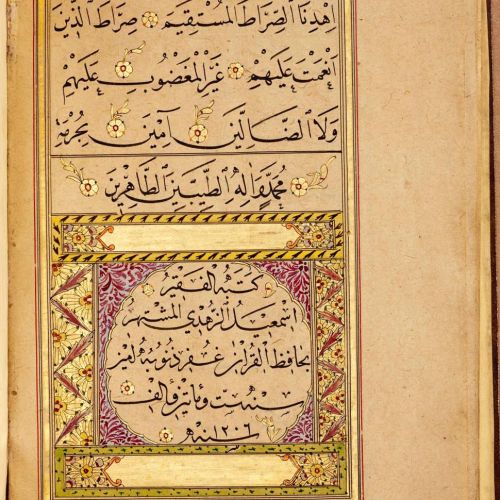 اِهْدِنَا الصِّرَاطَ الْمُسْتَقِيمَ صِرَاطَ الَّذِينَ
اَنْعَمْتَ عَلَيْهِمْ غَيْرِ الْمَغْضُوبِ عَلَيْهِمْ
وَلَا الضَّالِّينَ آمِينَ بِحُرْمَةِ
مُحَمَّدٍ وَآلِهِ الطَّيِّبِينَ الطَّاهِرِينَ
كتبه الفقير
اسمعيل الزهدي المشتهر
بحافظ القرآن غفر ذنوبه آمين
سنة ست ومأتين وألف
سنه ١٢٠٦